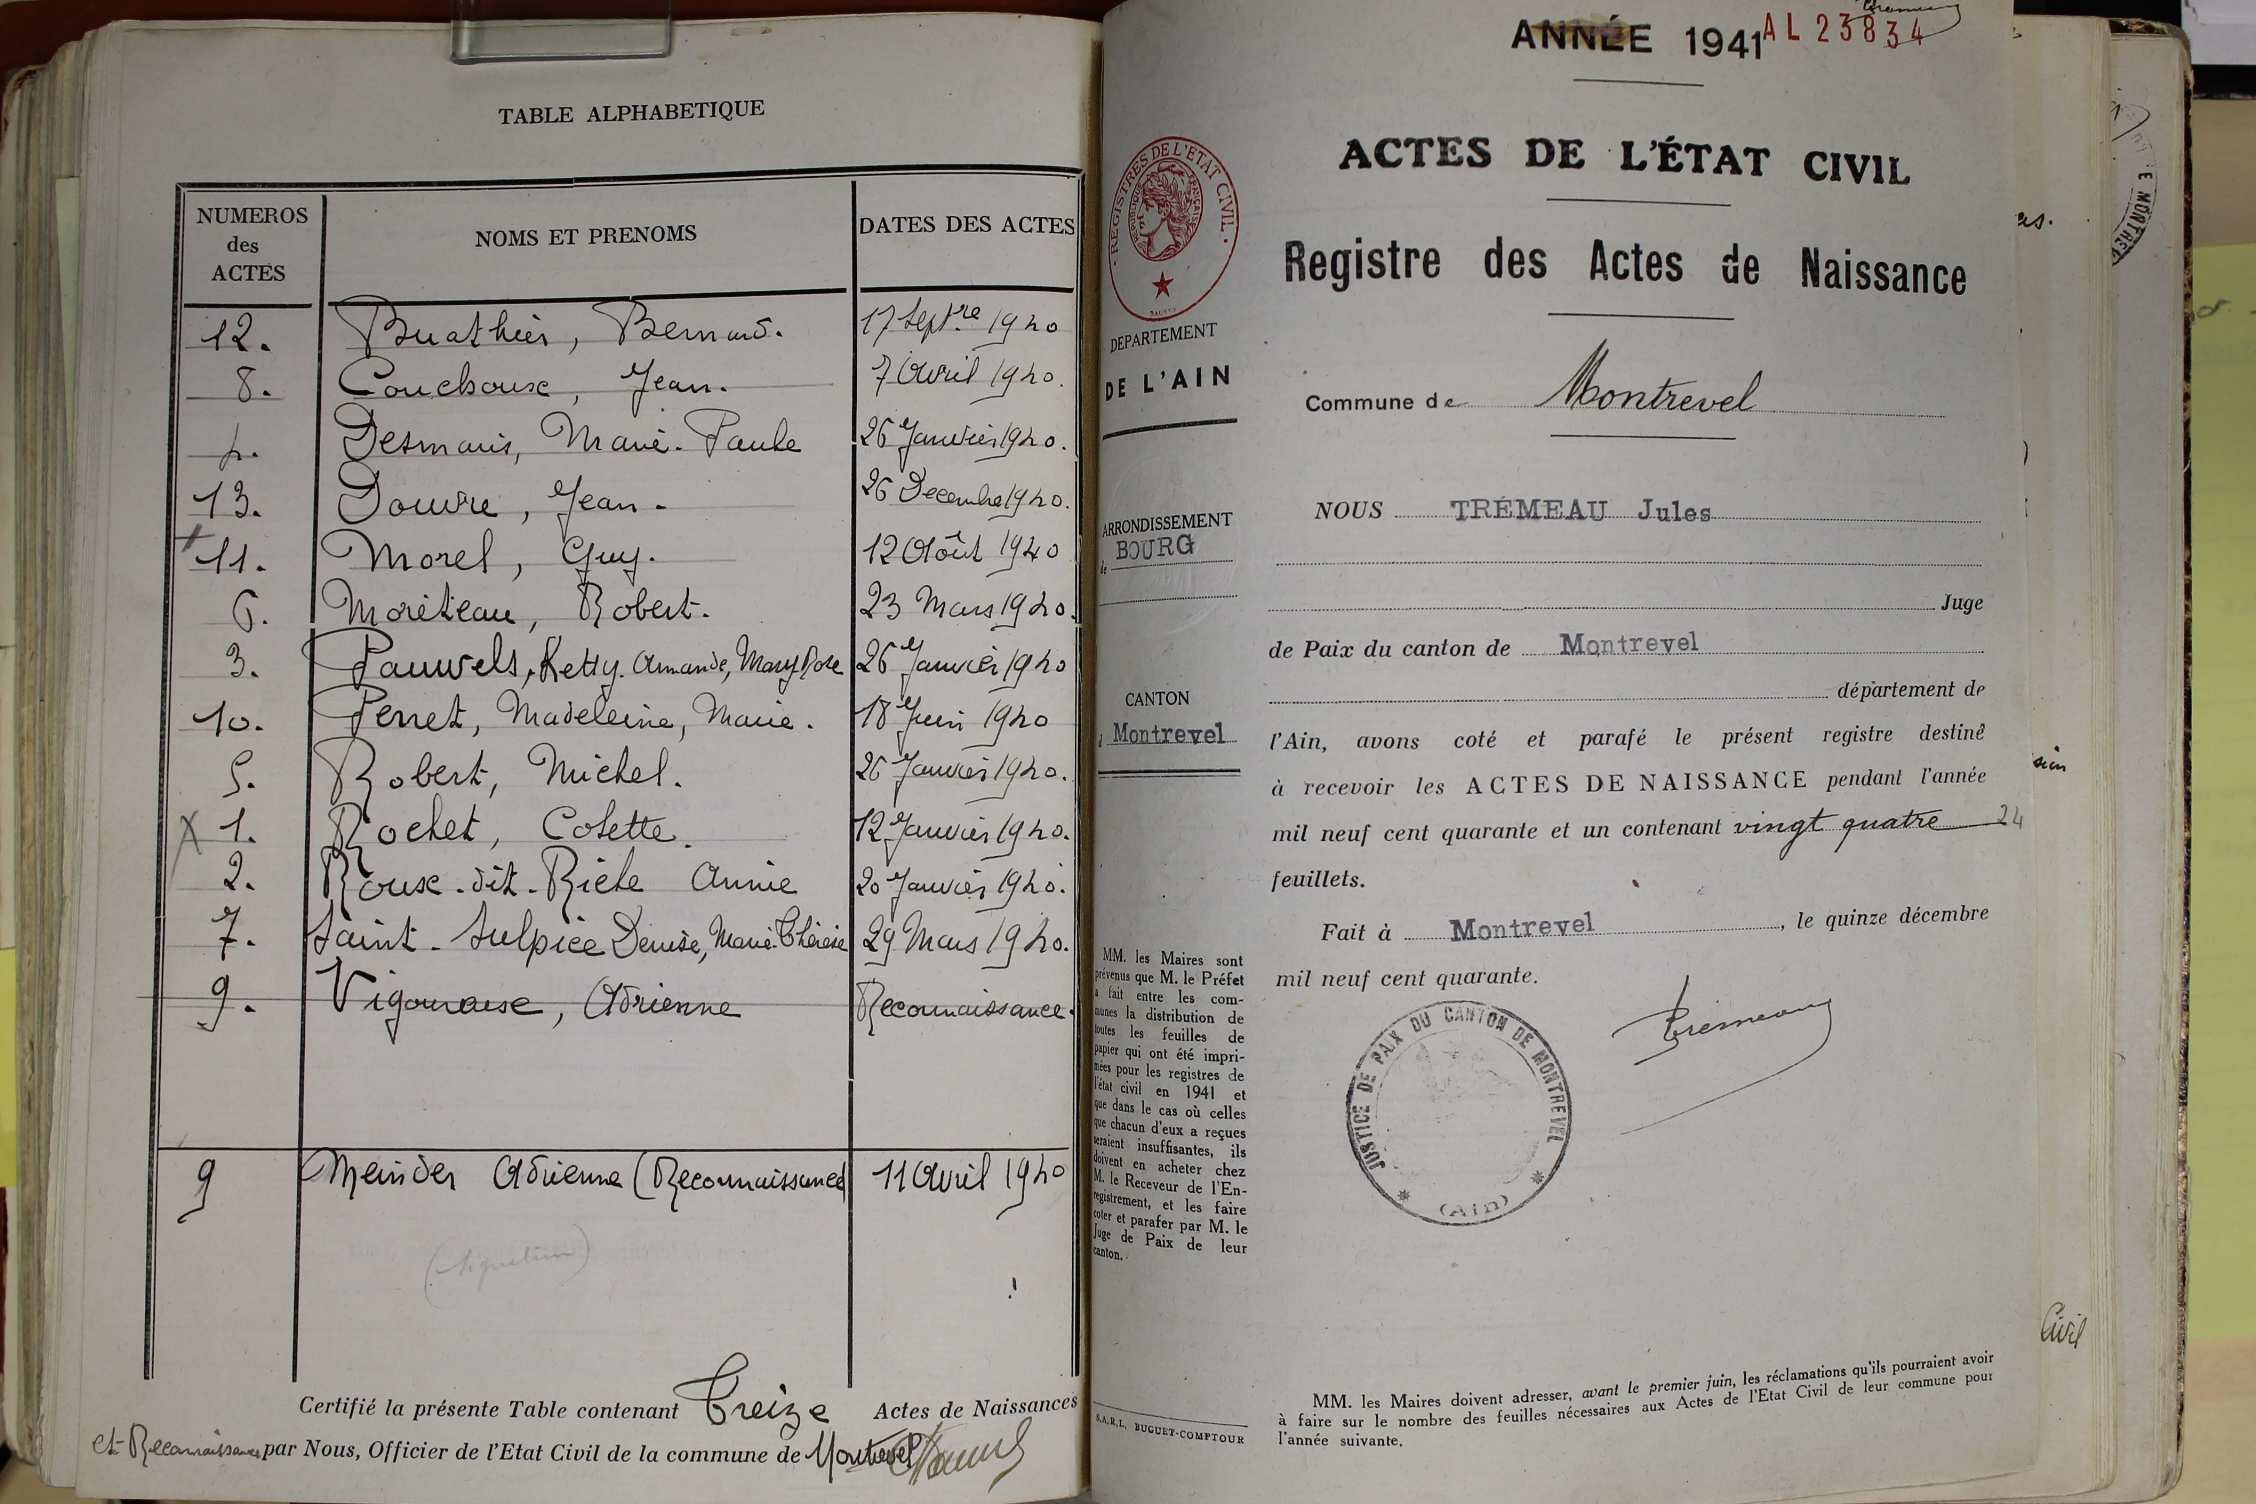 TABLE ALPHABETIQUE
NUMEROS des ACTES NOMS ET PRENOMS DATES DES ACTES
12. Buathier, Bernard. 17 Septre 1940
8. Couchoux, Jean. 7 Avril 1940.
4. Desmaris, Marie-Paule 26 Janvier 1940.
13. Douvre, Jean. 26 Decembre 1940.
11. Morel, Guy. 12 Août 1940
6. Moréteau, Robert. 23 Mars 1940.
3. Pauwels, Ketty. Amande, Mary Rose 26 Janvier 1940
10. Perret, Madeleine, Marie. 18 Juin 1940
5. Robert, Michel. 26 Janvier 1940.
1. Rochet, Colette. 12 Janvier 1940.
2. Roux-dit-Riche Annie 20 Janvier 1940.
7. Saint-Sulpice Denise, Marie-Thérèse 29 Mars 1940.
9. Adrienne Reconnaissance.
9 Meinder Adrienne (Reconnaissance) 11 Avril 1940
Certifié la présente Table contenant Treize Actes de Naissances
et Reconnaissance par Nous, Officier de l'Etat Civil de la commune de Montrevel
ANNÉE 1941 AL 23834
ACTES DE L'ÉTAT CIVIL
Registre des Actes de Naissance
Commune de Montrevel
NOUS TRÉMEAU Jules
Juge
de Paix du canton de Montrevel
département de
l'Ain, avons coté et parafé le présent registre destiné
à recevoir les ACTES DE NAISSANCE pendant l'année
mil neuf cent quarante et un contenant vingt quatre 24
feuillets.
Fait à Montrevel, le quinze décembre
mil neuf cent quarante.
Trémeau
JUSTICE DE PAIX DU CANTON DE MONTREVEL
(Ain)
MM. les Maires doivent adresser, avant le premier juin, les réclamations qu'ils pourraient avoir
à faire sur le nombre des feuilles nécessaires aux Actes de l'Etat Civil de leur commune pour
l'année suivante.
REGISTRES DE L'ETAT CIVIL
REPUBLIQUE FRANÇAISE
DEPARTEMENT
DE L'AIN
ARRONDISSEMENT
de BOURG
CANTON
Montrevel
MM. les Maires sont
prévenus que M. le Préfet
a fait entre les com-
munes la distribution de
toutes les feuilles de
papier qui ont été impri-
mées pour les registres de
l'état civil en 1941 et
que dans le cas où celles
que chacun d'eux a reçues
seraient insuffisantes, ils
doivent en acheter chez
M. le Receveur de l'En-
registrement, et les faire
coter et parafer par M. le
Juge de Paix de leur
canton.
S.A.R.L. BUGUET-COMPTOUR
Civil